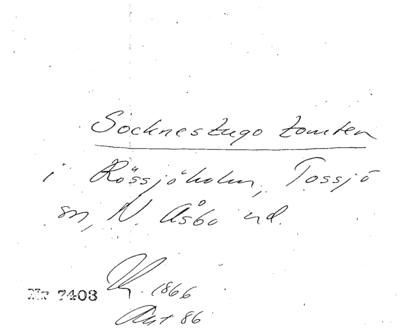 Sockneszugo tomten
i Rössjöholm, Tossjö
sn, N. Åsbo hd.
1866
Nr 7403
Akt 86